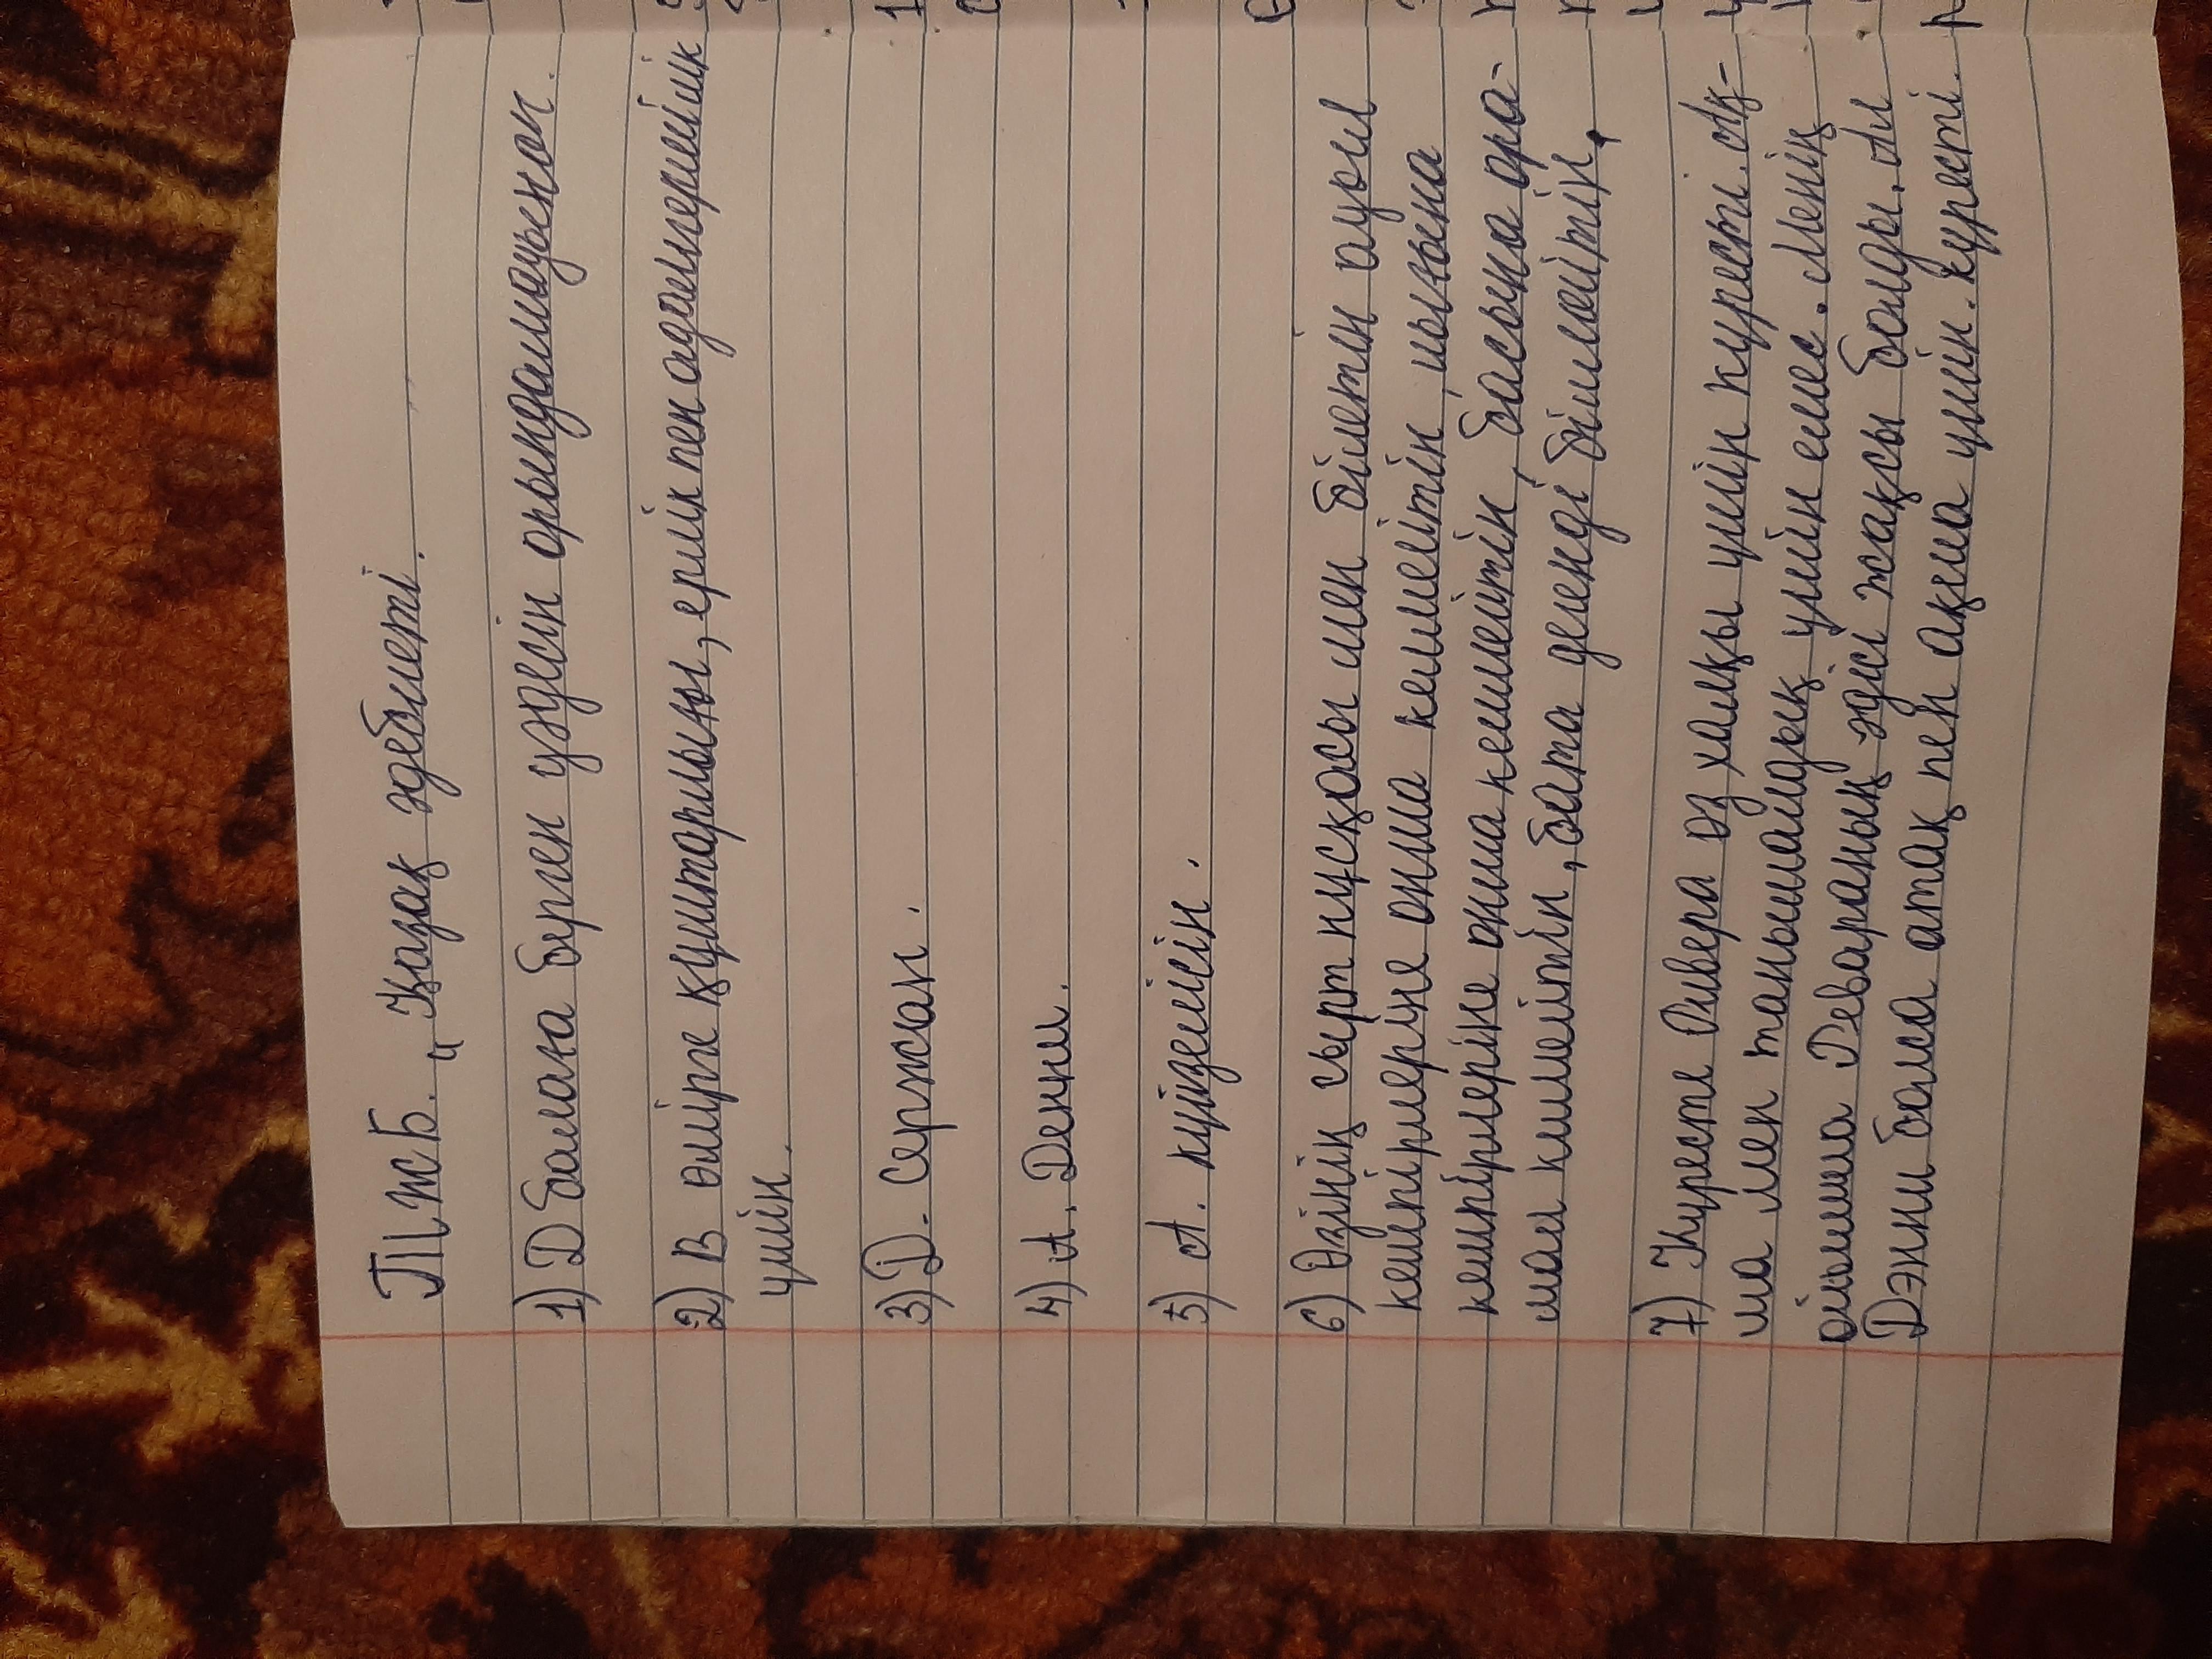 ТЖБ. „Қазақ әдебиеті.
1) D балаға берген уәдесін орындамағынан.
2) В өмірге құштарлығы, ерлік пен адамгершілік
үшін.
3) D. Сержан.
4) А. Дени.
5) А. күйзелісін.
6) Өзінің сырт нұсқасы мен білетін ауыл
кемпірлеріне онша келмейтін шығына
кемпірлеріне онша келмейтін, басына ора-
мал килмейтін, бата дегенді білмейтін,
7) Күресте Ривера өз халқы үшін күресті. Ақ-
ша мен танымалдық үшін емес. Менің
ойымша Ривараның әдісі жақсы болды. Ал
Дэнни болса атақ пен ақша үшін. күресті.